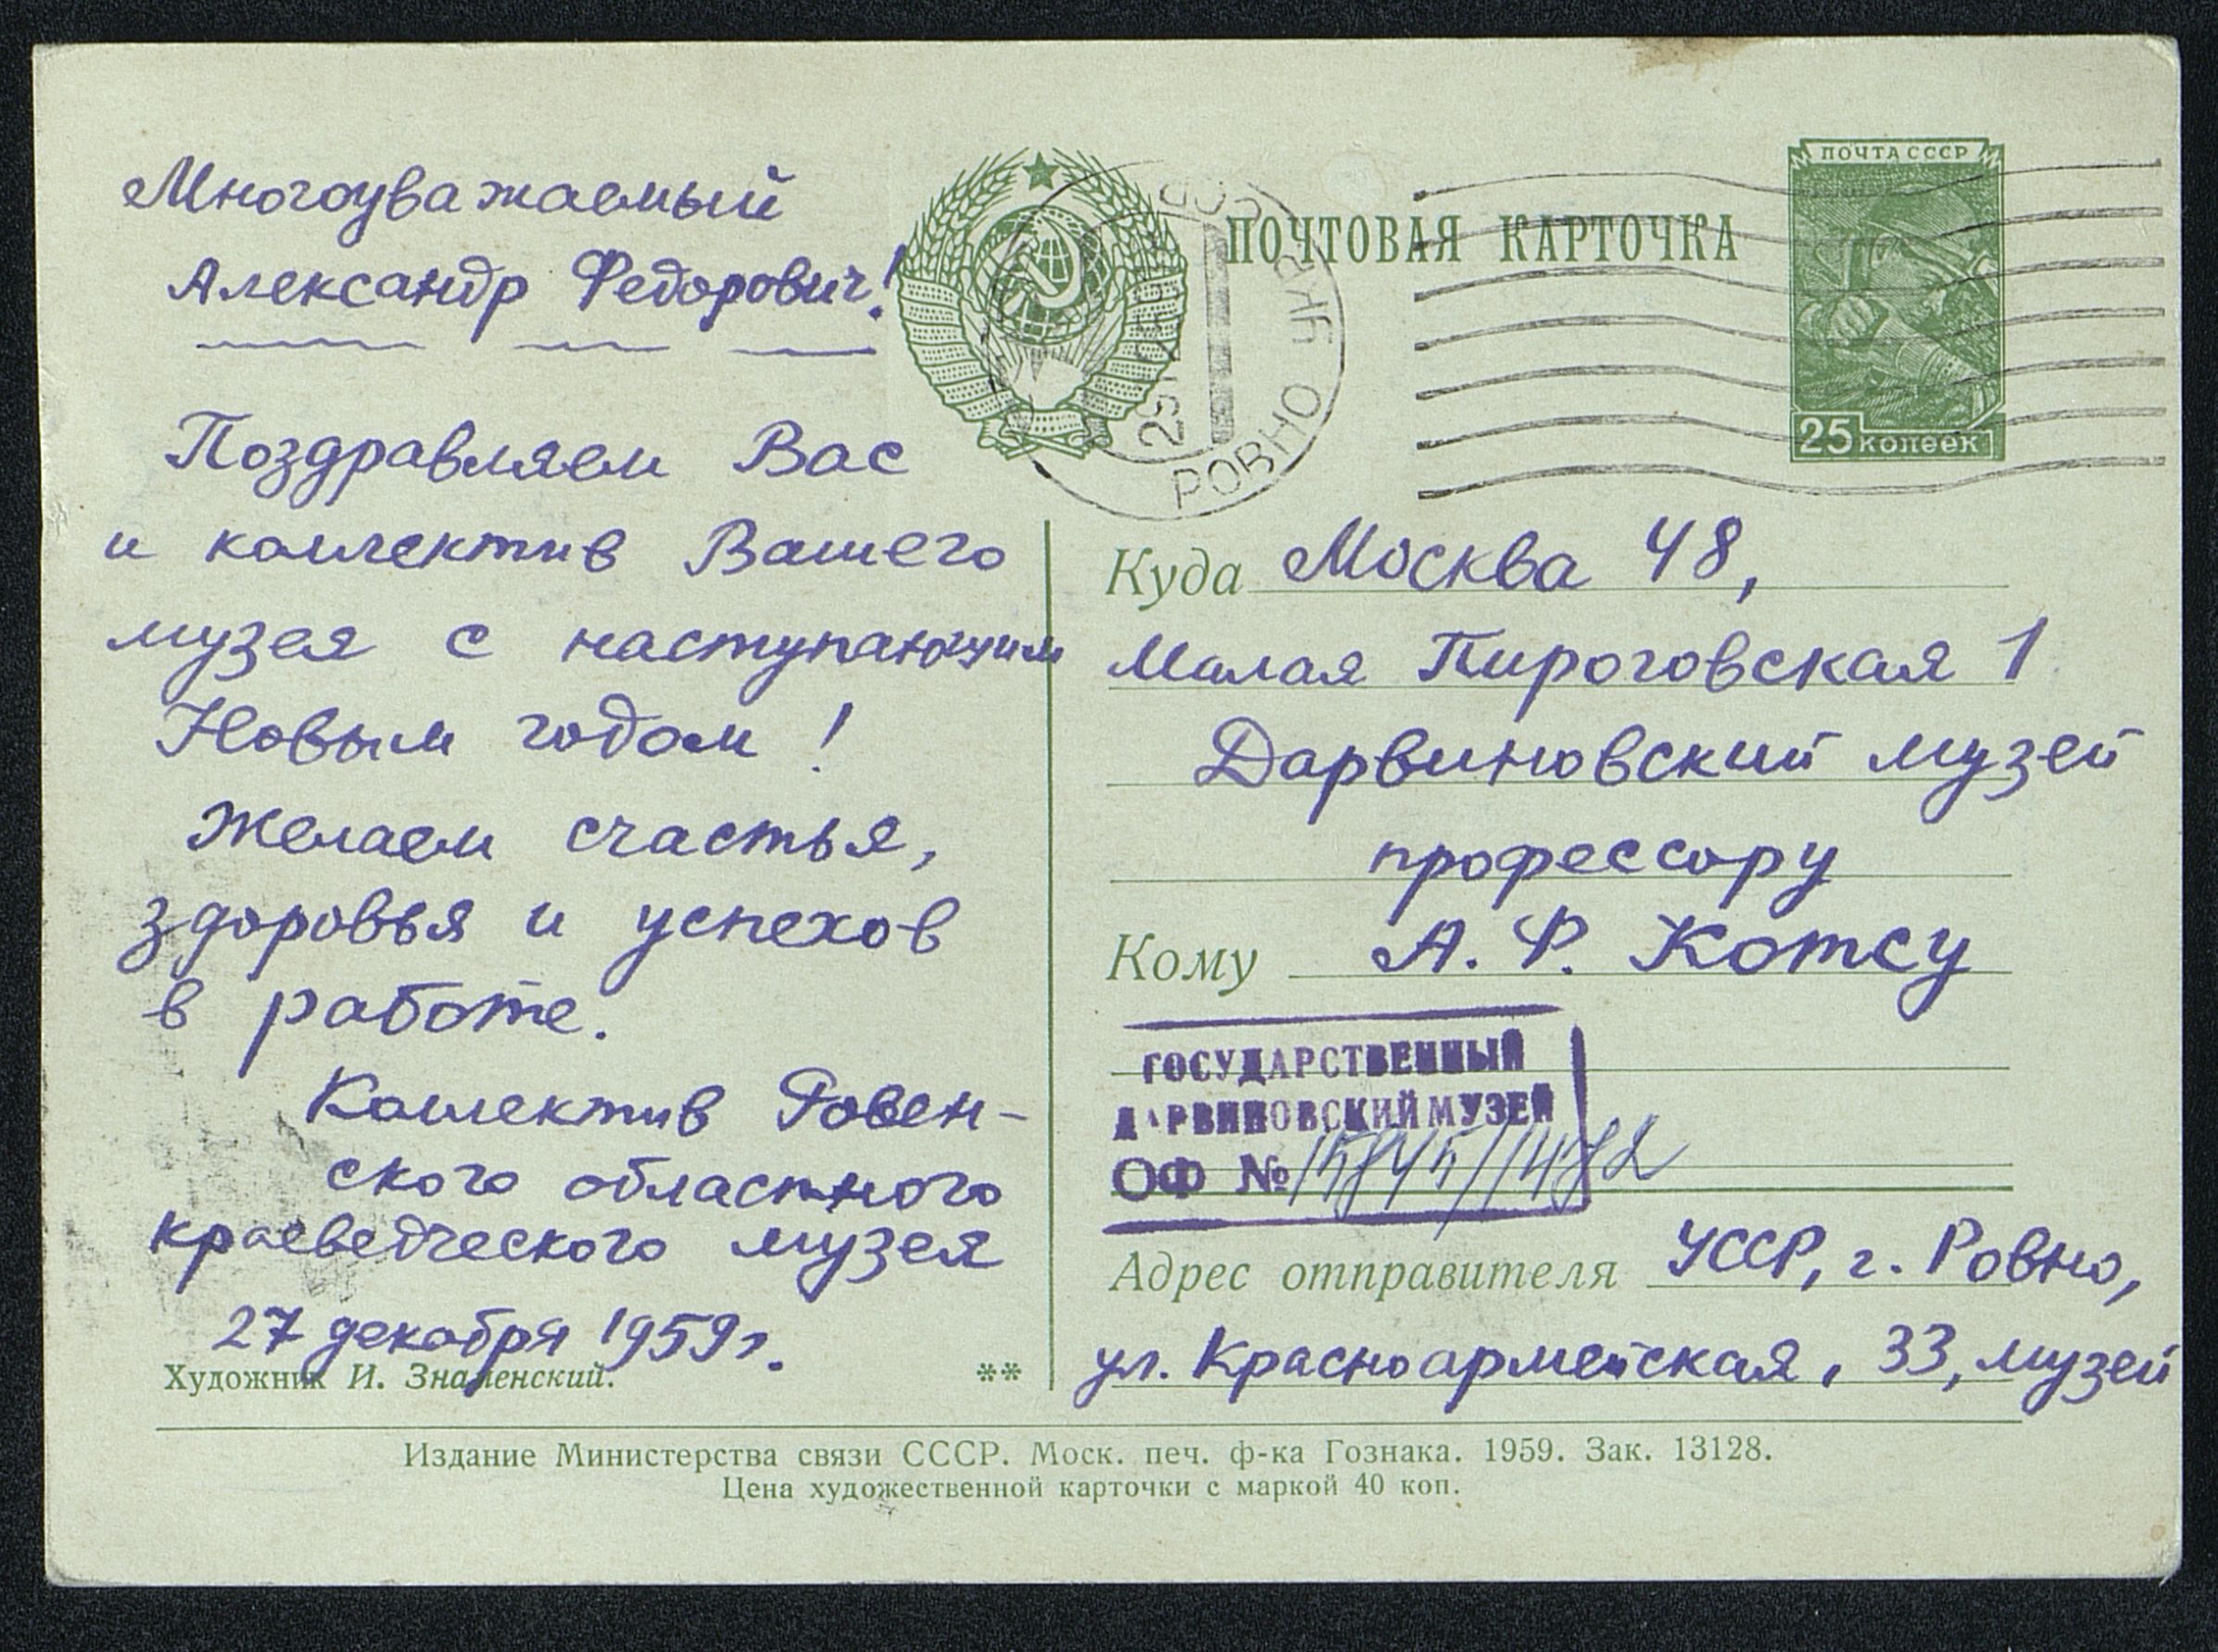 Многоуважаемый
Александр Федорович!
Поздравляем Вас
и коллектив Вашего
музея с наступающим
Новым годом!
Желаем счастья,
здоровья и успехов
в работе.
Коллектив Ровен-
ского областного
краеведческого музея
27 декабря 1959 г.
Художник И. Знаменский.
**
ПОЧТОВАЯ КАРТОЧКА
ПОЧТА СССР
25 копеек
РОВНО
Куда Москва 48,
Малая Пироговская 1
Дарвиновский музей
профессору
Кому А. Ф. Котсу
ГОСУДАРСТВЕННЫЙ
ДАРВИНОВСКИЙ МУЗЕЙ
ОФ №
Адрес отправителя УССР, г. Ровно,
ул. Красноармейская, 33, музей
Издание Министерства связи СССР. Моск. печ. ф-ка Гознака. 1959. Зак. 13128.
Цена художественной карточки с маркой 40 коп.